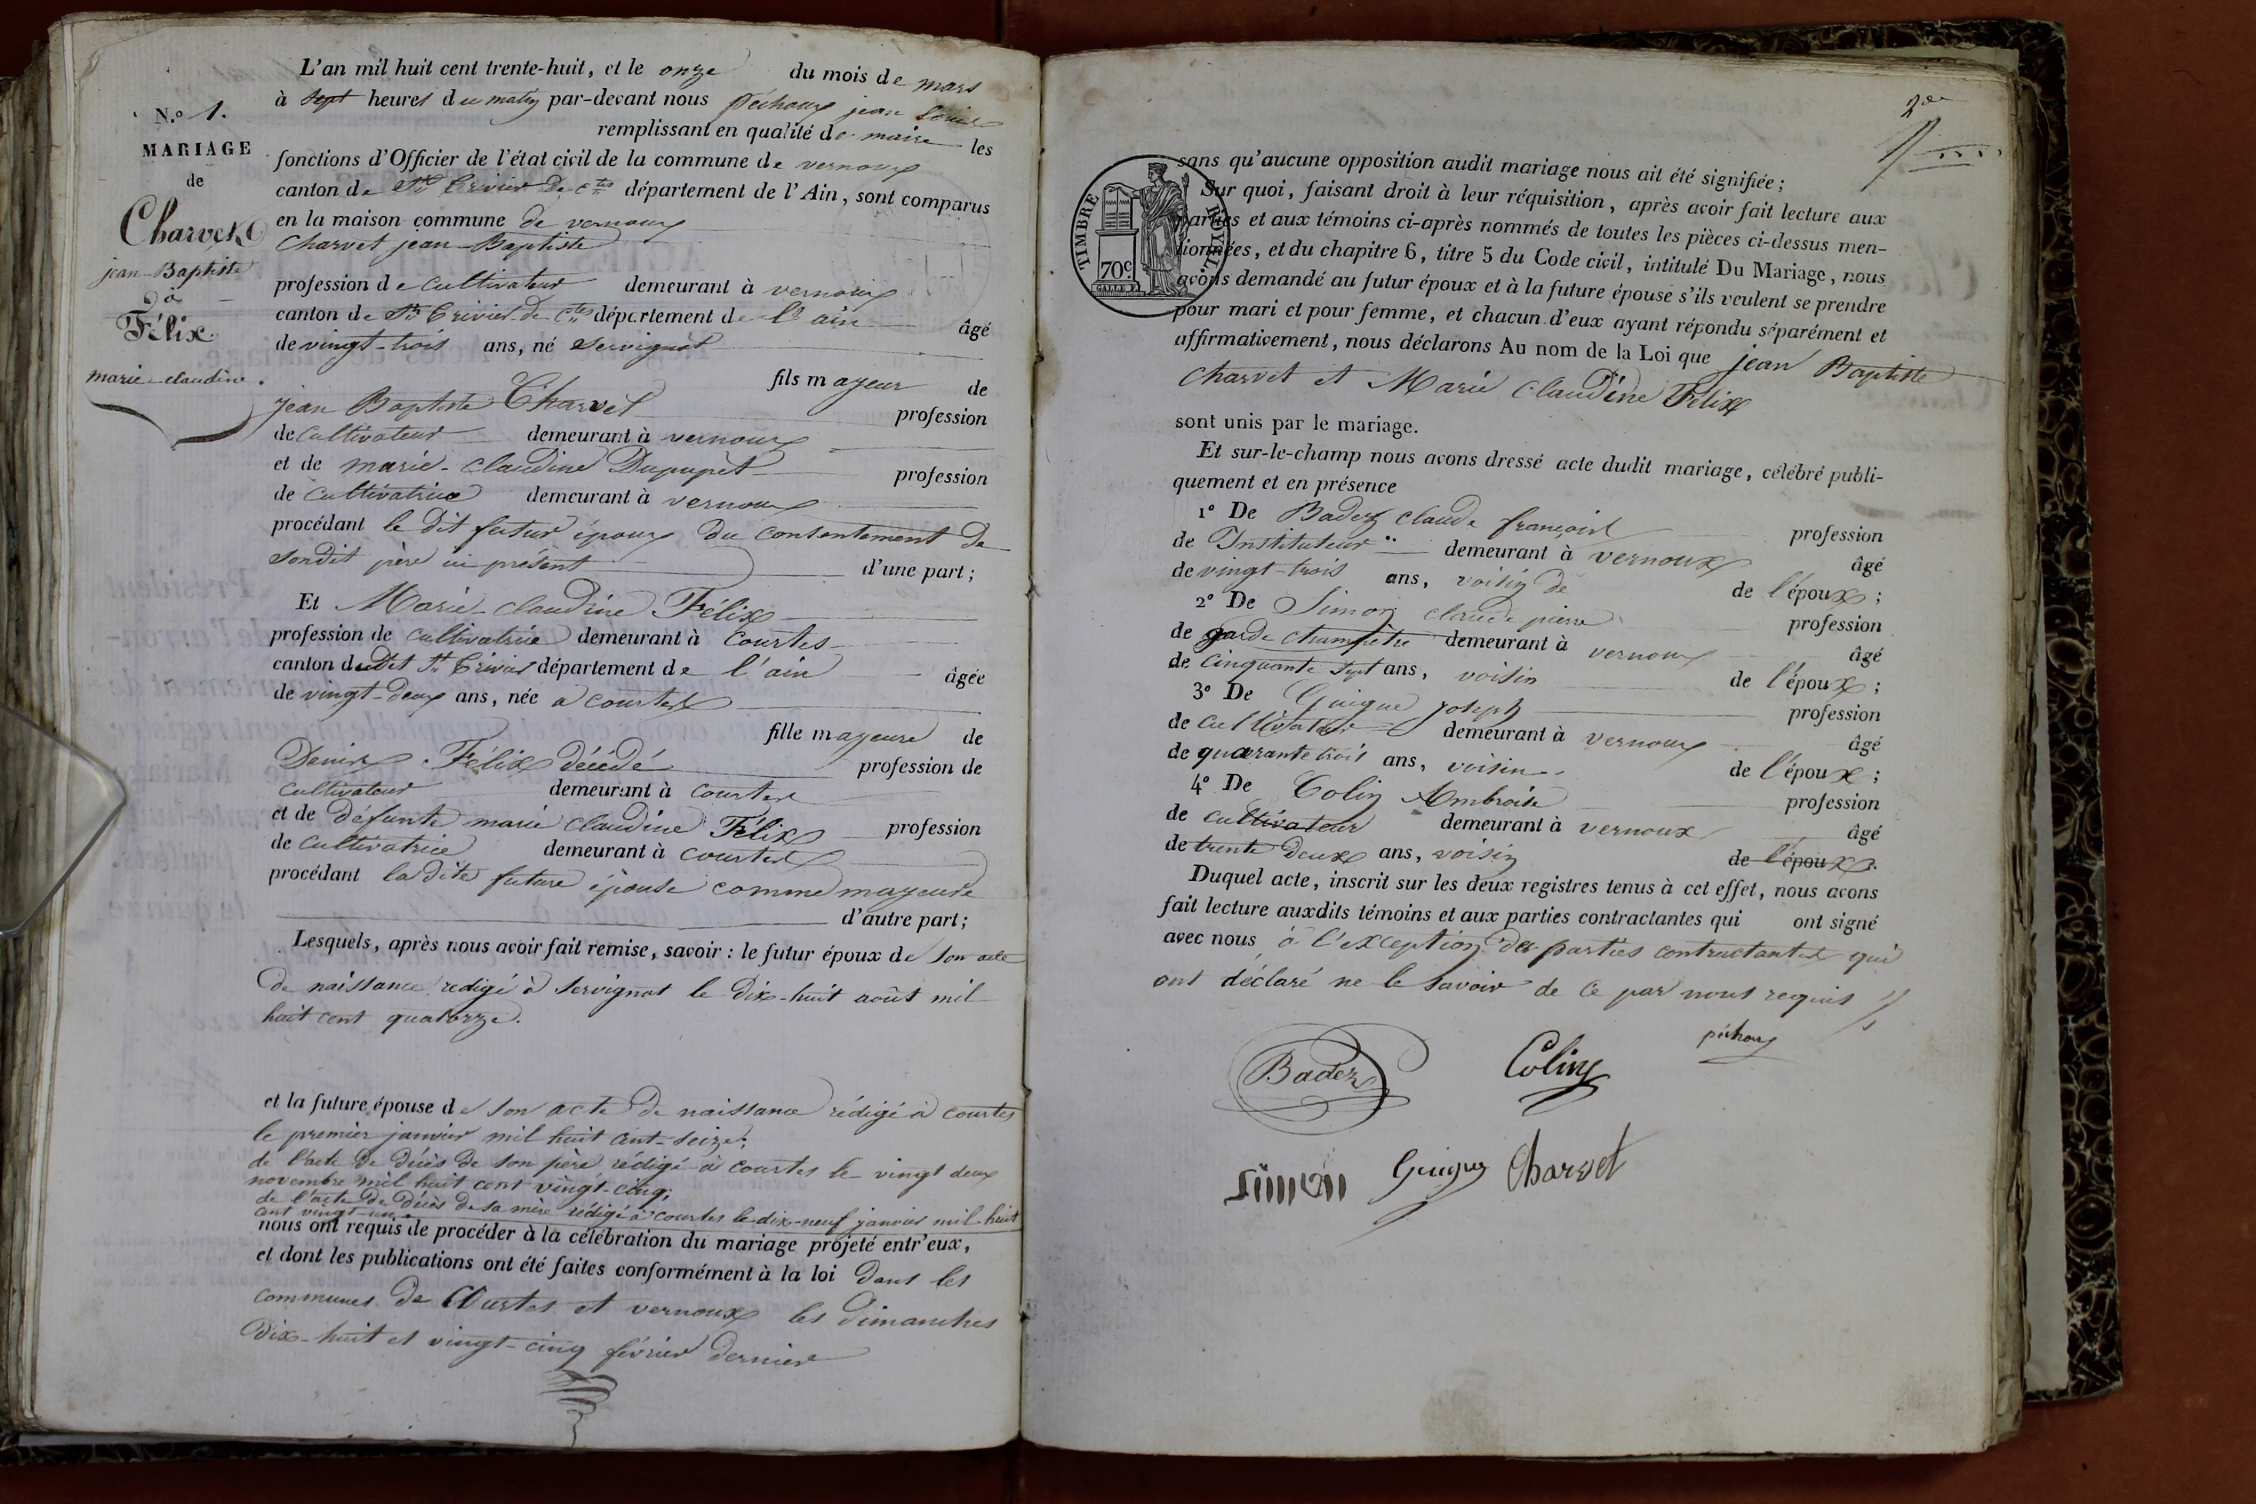 L'an mil huit cent trente-huit, et le onze du mois de mars
à sept heures du matin par-devant nous péchoux jean Louis
remplissant en qualité de maire les
fonctions d'Officier de l'état civil de la commune de vernoux
canton de St Trivier de Ctes département de l'Ain, sont comparus
en la maison commune de vernoux
Charvet jean-Baptiste
profession de cultivateur demeurant à vernoux
canton de St Trivier de Ctes département de l'ain âgé
de vingt-trois ans, né servignat
fils mayeur de
jean Baptiste Charvet profession
de cultivateur demeurant à vernoux
et de marie-claudine Dupupet profession
de cultivatrice demeurant à vernoux
procédant le dit futur époux du consentement de
sondit père ici présent d'une part;
Et Marie-claudine Félix
profession de cultivatrice demeurant à Courtes
canton dudit St Trivier département de l'ain âgée
de vingt-deux ans, née a courtes
fille mayeure de
Denis Félix décédé profession de
cultivateur demeurant à courtes
et de défunte marie claudine Félix profession
de cultivatrice demeurant à courtes
procédant ladite future épouse comme mayeure
d'autre part;
Lesquels, après nous avoir fait remise, savoir: le futur époux de son acte
de naissance redigé à servignat le dix-huit août mil
huit cent quatorze.
et la future épouse de son acte de naissance rédigé à courtes
le premier janvier mil huit cent-seize;
de l'acte de décès de son père, rédigé à courtes le vingt deux
novembre mil huit cent vingt-cinq;
de l'acte de décès de sa mère rédigé à courtes le dix-neuf janvier mil huit
cent vingt-un
nous ont requis de procéder à la célébration du mariage projeté entr'eux,
et dont les publications ont été faites conformément à la loi dans les
communes de Courtes et vernoux les dimanches
dix-huit et vingt-cinq février dernier
N.o 1.
MARIAGE
de
Charvet
jean-Baptiste
à
Félix
marie-claudine.
TIMBRE ROYAL
70c.
sans qu'aucune opposition audit mariage nous ait été signifiée;
Sur quoi, faisant droit à leur réquisition, après avoir fait lecture aux
parties et aux témoins ci-après nommés de toutes les pièces ci-dessus men-
tionnées, et du chapitre 6, titre 5 du Code civil, intitulé Du Mariage, nous
avons demandé au futur époux et à la future épouse s'ils veulent se prendre
pour mari et pour femme, et chacun d'eux ayant répondu séparément et
affirmativement, nous déclarons Au nom de la Loi que jean Baptiste
Charvet et Marie Claudine Félix
sont unis par le mariage.
Et sur-le-champ nous avons dressé acte dudit mariage, célébré publi-
quement et en présence
1° De Badez claude françois profession
de Instituteur demeurant à vernoux âgé
de vingt-trois ans, voisin de de l'époux;
2° De Simon claude pierre profession
de garde champêtre demeurant à vernoux âgé
de cinquante sept ans, voisin de l'époux;
3° De Guigue joseph profession
de cultivateur demeurant à vernoux âgé
de quarante trois ans, voisin de l'époux;
4° De Colin Ambroise profession
de cultivateur demeurant à vernoux âgé
de trente deux ans, voisin de l'époux.
Duquel acte, inscrit sur les deux registres tenus à cet effet, nous avons
fait lecture auxdits témoins et aux parties contractantes qui ont signé
avec nous à l'exception des parties contractantes qui
ont déclaré ne le savoir de ce par nous requis
péchoux
Badez Colin
Simon Guigue Charvet